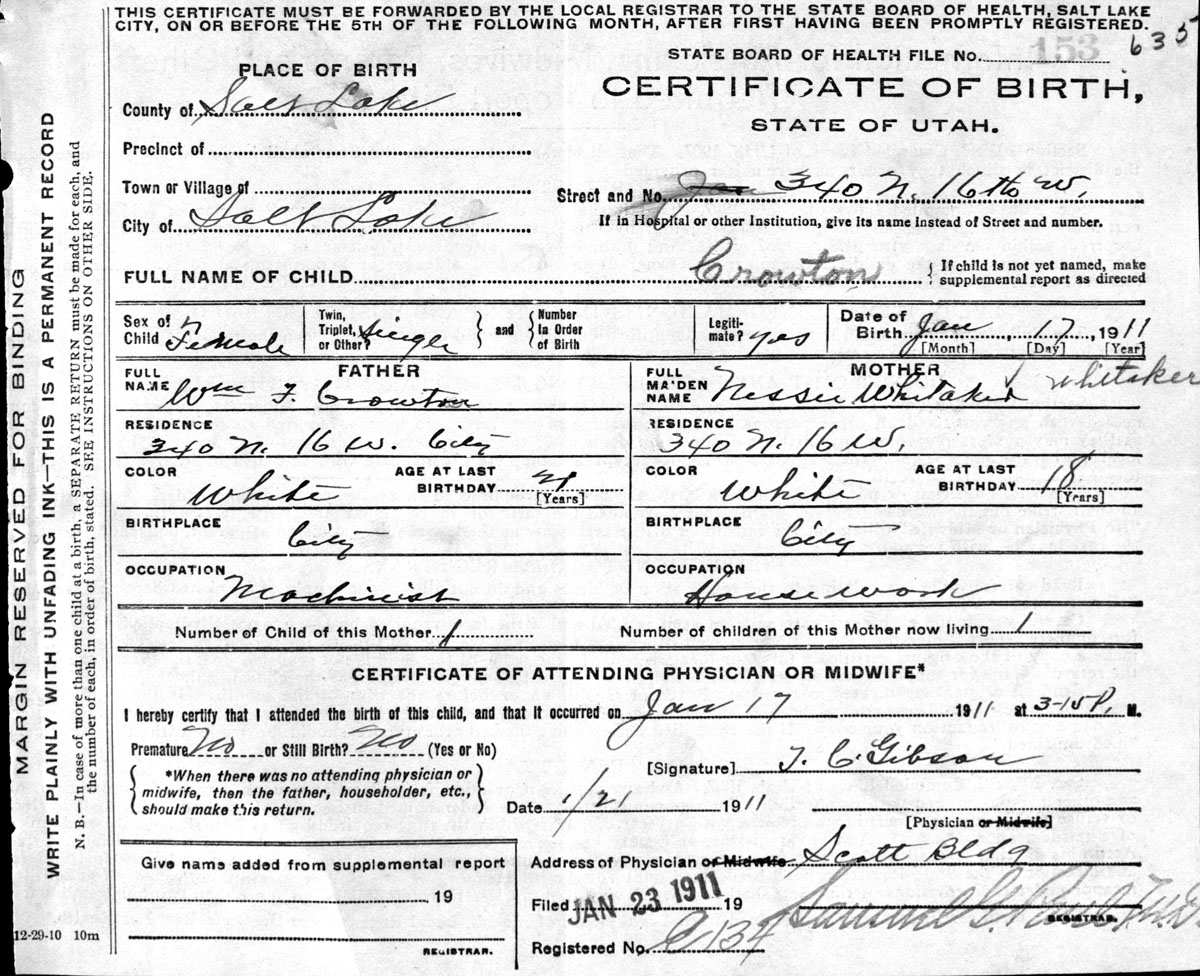 THIS CERTIFICATE MUST BE FORWARDED BY THE LOCAL REGISTRAR TO THE STATE BOARD OF HEALTH, SALT LAKE
CITY, ON OR BEFORE THE 5TH OF THE FOLLOWING MONTH, AFTER FIRST HAVING BEEN PROMPTLY REGISTERED.
STATE BOARD OF HEALTH FILE No. 153 635
PLACE OF BIRTH
CERTIFICATE OF BIRTH,
STATE OF UTAH.
County of Salt Lake
Precinct of
Town or Village of
Street and No. 340 N. 16th W.
City of Salt Lake
If in Hospital or other Institution, give its name instead of Street and number.
FULL NAME OF CHILD Crowton
If child is not yet named, make
supplemental report as directed
Sex of Child Female
Twin, Triplet, or Other? Singer
and
Number In Order of Birth
Legiti- mate? yes
Date of Birth Jan 17, 1911
[Month] [Day] [Year]
FATHER
FULL NAME Wm F. Crowton
MOTHER
FULL MAIDEN NAME Nessie Whitaker Whitaker
RESIDENCE 340 N. 16 W. City
RESIDENCE 340 N. 16 W.
COLOR White
AGE AT LAST BIRTHDAY 21 [Years]
COLOR White
AGE AT LAST BIRTHDAY 18 [Years]
BIRTHPLACE City
BIRTHPLACE City
OCCUPATION Machinist
OCCUPATION Housework
Number of Child of this Mother 1
Number of children of this Mother now living 1
CERTIFICATE OF ATTENDING PHYSICIAN OR MIDWIFE*
I hereby certify that I attended the birth of this child, and that it occurred on Jan 17 1911 at 3-15 P. M.
Premature No or Still Birth? No (Yes or No)
*When there was no attending physician or
midwife, then the father, householder, etc.,
should make this return.
[Signature] T. C. Gibson
Date 1/21 1911
[Physician or Midwife]
Give name added from supplemental report
19
REGISTRAR.
Address of Physician or Midwife Scott Bldg
Filed JAN 23 1911 19
REGISTRAR.
Registered No. C 137
12-29-10 10m
MARGIN RESERVED FOR BINDING
WRITE PLAINLY WITH UNFADING INK—THIS IS A PERMANENT RECORD
N. B.—In case of more than one child at a birth, a SEPARATE RETURN must be made for each, and
the number of each, in order of birth, stated. SEE INSTRUCTIONS ON OTHER SIDE.